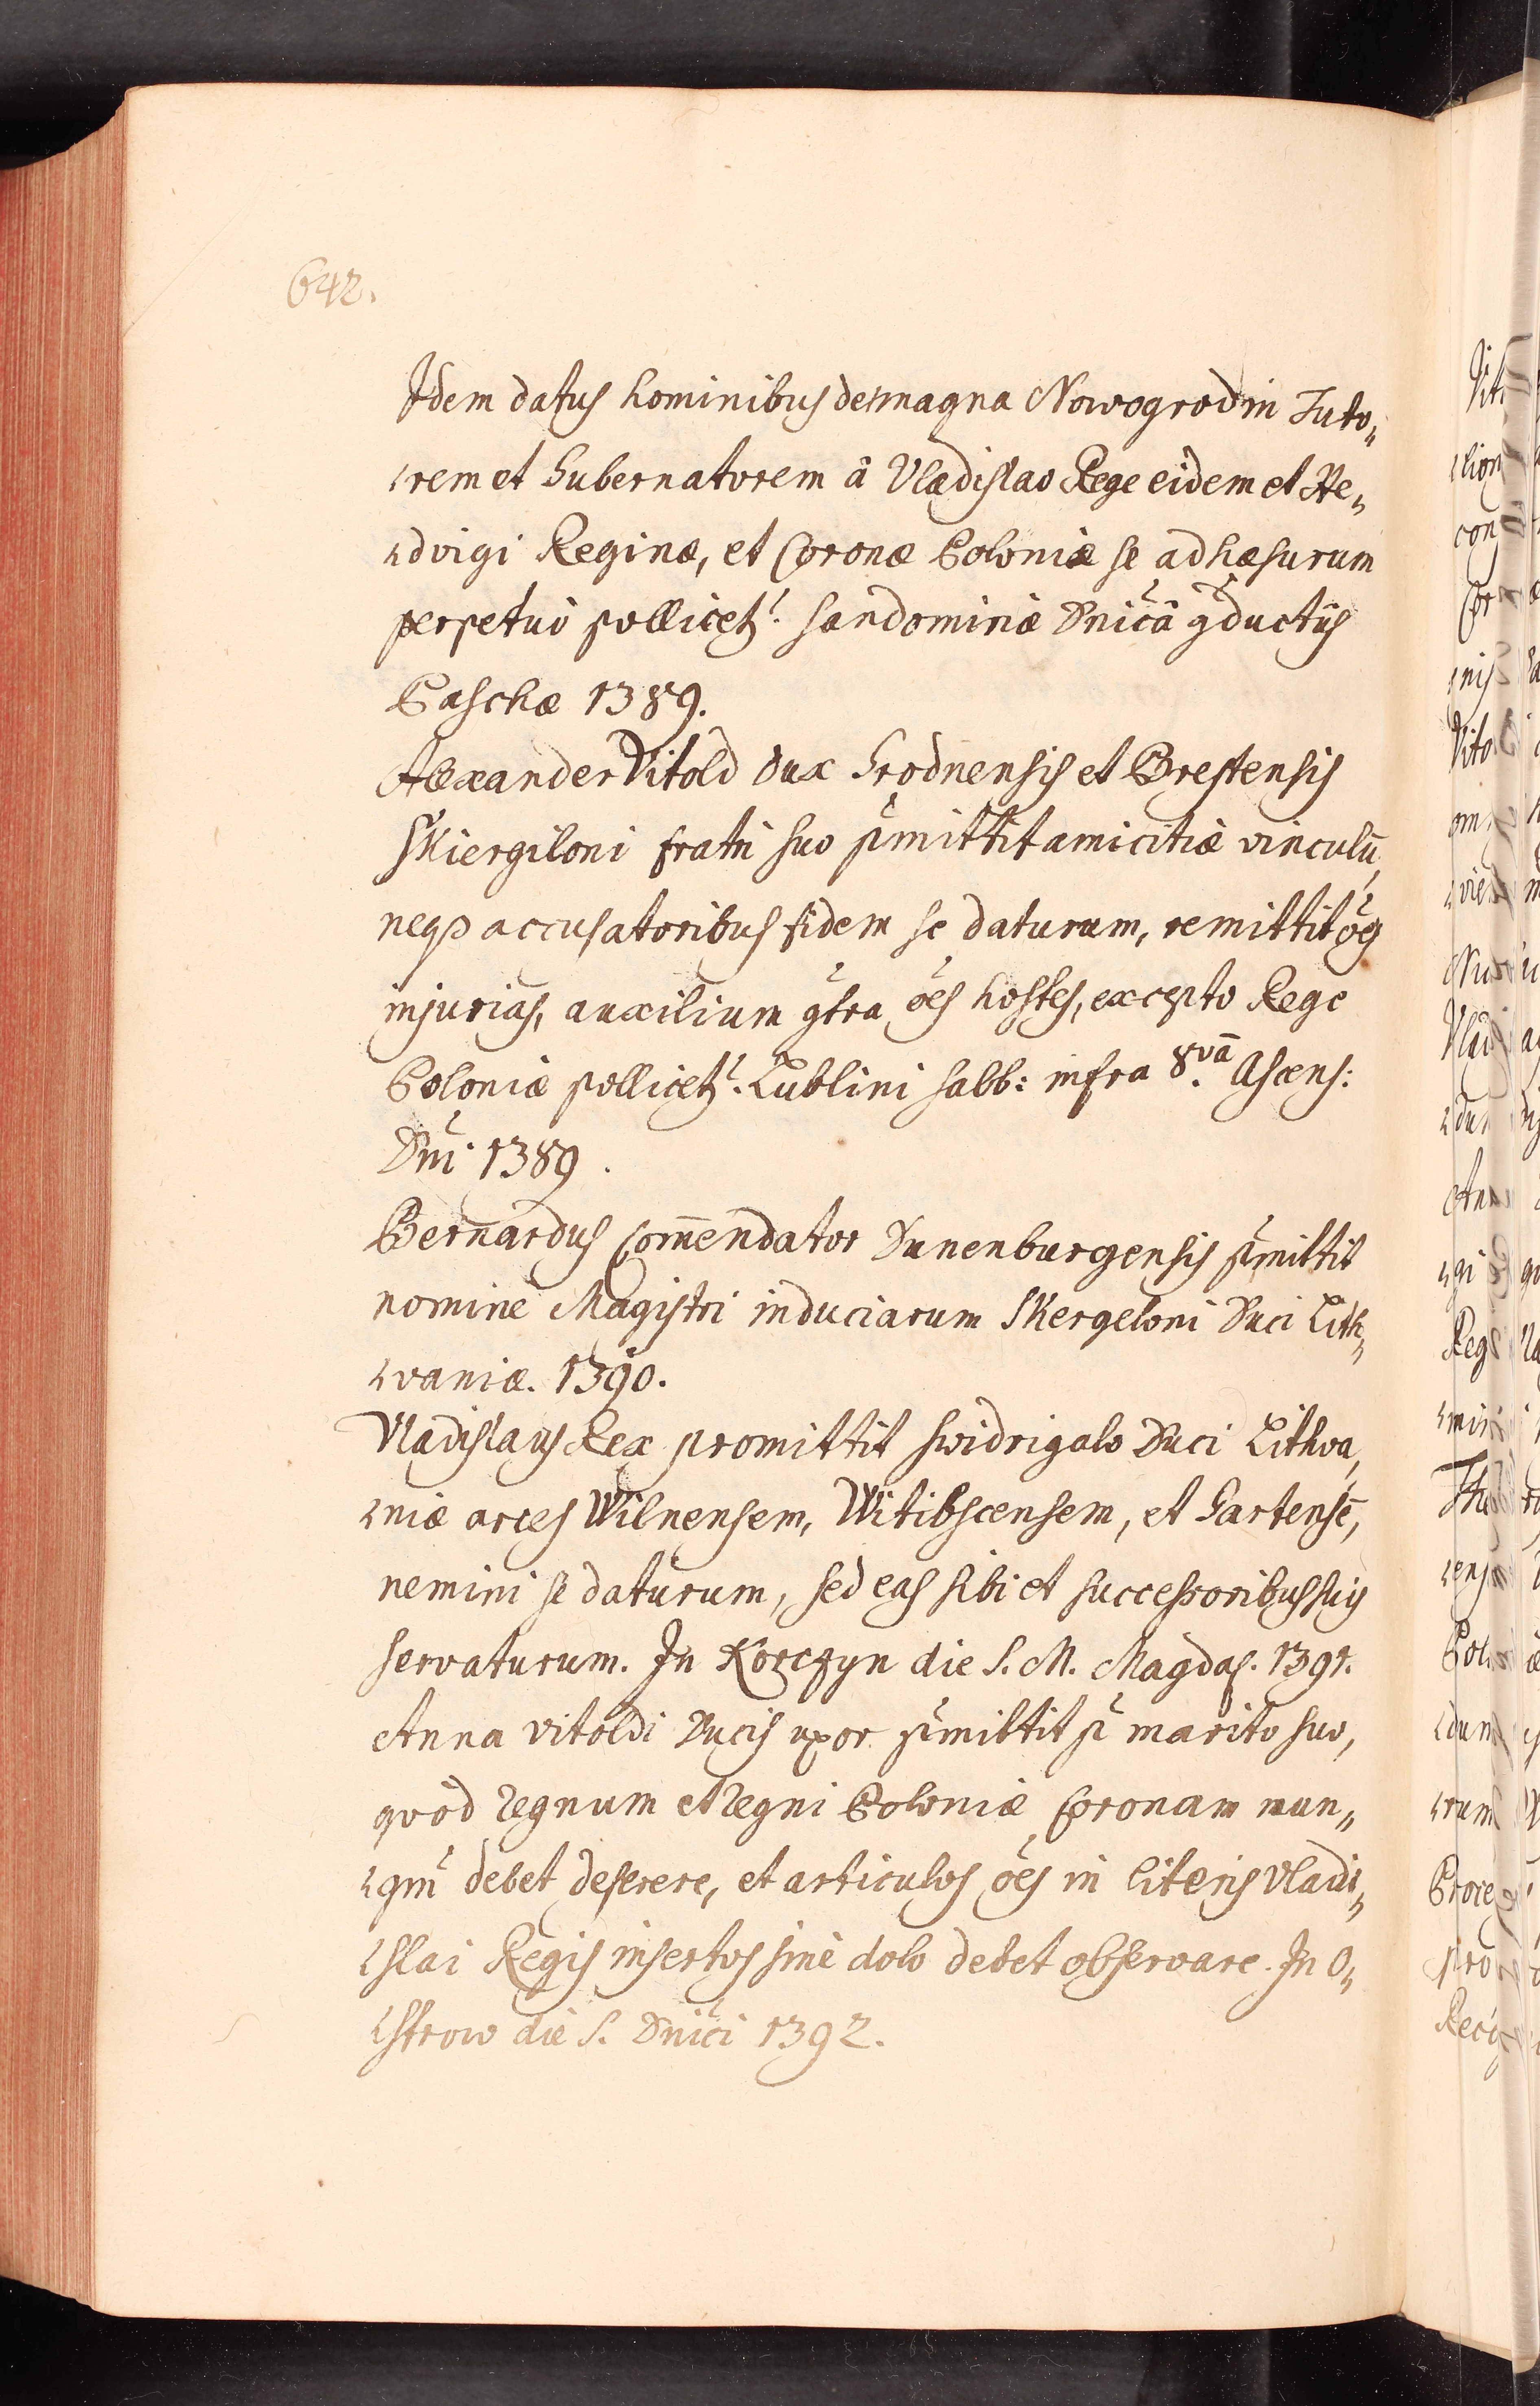 642.
Idem datus hominibus de magna Nowogrod in Tuto„
„rem et Gubernatorem â Vladislao Rege eidem et He„
„dvigi Reginæ, et Coronæ Poloniæ se adhæsurum
perpetuò pollicet.r Sandomiriæ Dnicâ gductûs
Paschæ 1389.
Alexander Vitold Dux Grodnensis et Brestensis
Skiergiloni fratri suo pmittit amicitiæ vinculũ,
neqз accusatoribus fidem se daturum, remittit oẽs
injurias, auxilium gtra oẽs hostes, excepto Rege
Poloniæ pollicet.r Lublini sabb: infra 8.vã Ascens:
Dni 1389.
Bernardus Com̃endator Dunenburgensis pmittit
nomine Magistri induciarum Skergeloni Duci Lith„
„vaniæ. 1390.
Vladislaus Rex promittit Swidrigalo Duci Lithva„
„niæ arces Wilnensem, Witibscensem, et Gartensẽ,
nemini se daturum, sed eas sibi et successoribus suis
servaturum. In Korczyn die S. M. Magdal. 1391.
Anna Vitoldi Ducis uxor pmittit p marito suo,
qvòd regnum et regni Poloniæ Coronam nun„
„qm̃ debet deserere, et articulos oẽs in literis Vladi„
„slai Regis insertos sinè dolo debet observare. In O„
„strow die S. Dnici 1392.